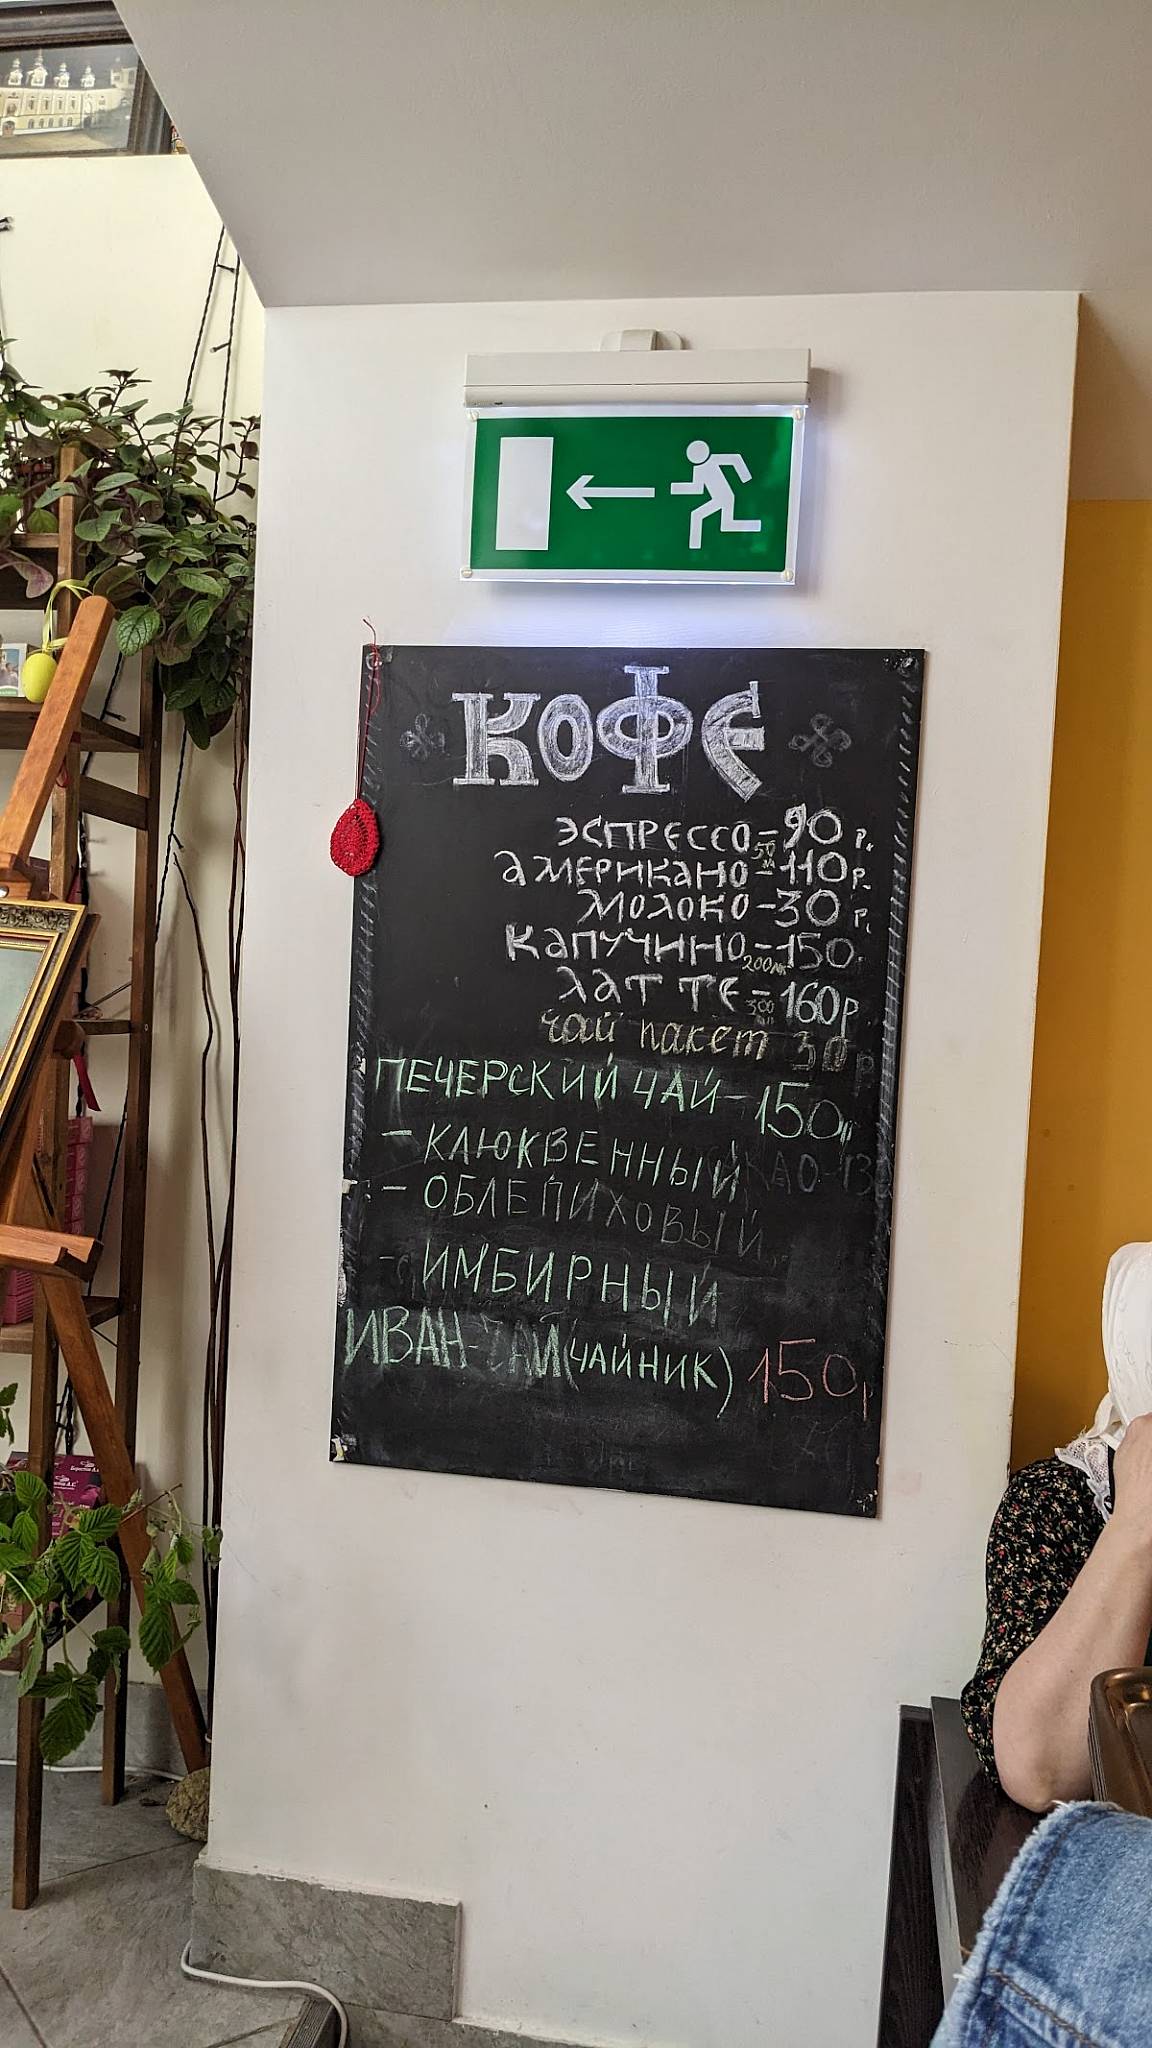 КОФЕ
ЭСПРЕССО – 90 р.
50
АМЕРИКАНО – 110 р.
МОЛОКО – 30 р.
КАПУЧИНО – 150
200мл
ЛАТТЕ – 160р
300
чай пакет 30 р
ПЕЧЕРСКИЙ ЧАЙ – 150р
– КЛЮКВЕННЫЙ
– ОБЛЕПИХОВЫЙ
– ИМБИРНЫЙ
ИВАН-ЧАЙ (ЧАЙНИК) 150р